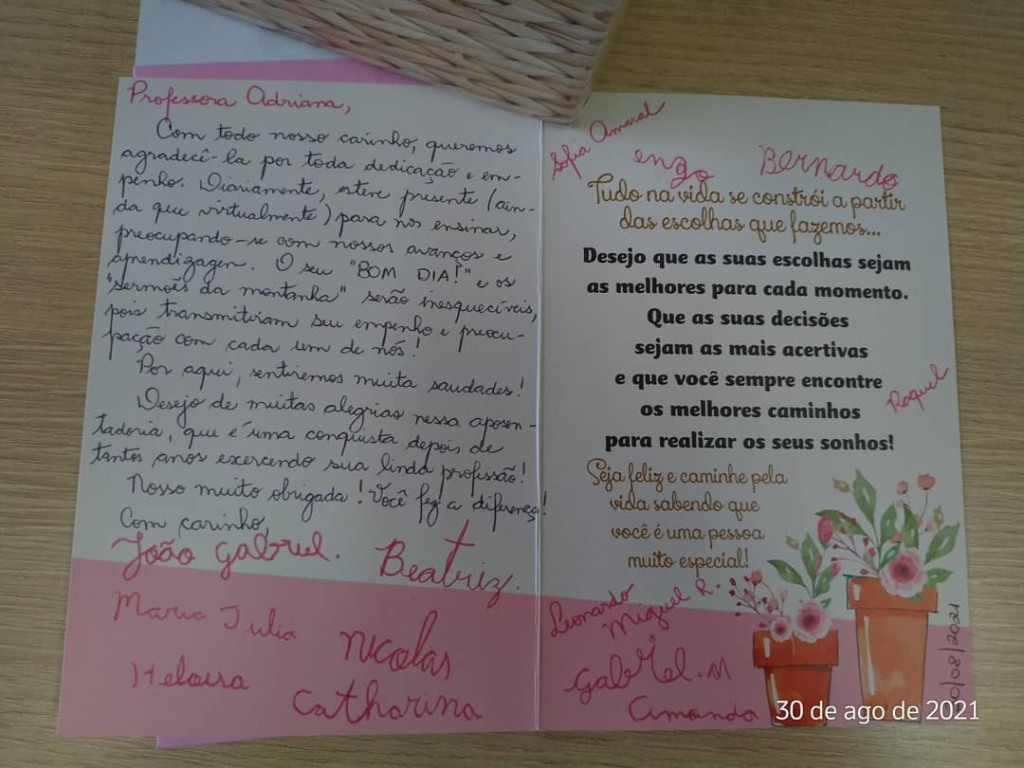 Professora Adriana,
Com todo nosso carinho, queremos
agradecê-la por toda dedicação e em-
penho. Diariamente, esteve presente (ain-
da que virtualmente) para nos ensinar,
preocupando-se com nossos avanços e
aprendizagem. O seu "BOM DIA!" e os
"sermões da montanha" serão inesquecíveis,
pois transmitiram seu empenho e preocu-
pação com cada um de nós!
Por aqui, sentiremos muita saudades!
Desejo de muitas alegrias nessa aposen-
tadoria, que é uma conquista depois de
tantos anos exercendo sua linda profissão!
Nosso muito obrigada! Você fez a diferença!
Com carinho,
João Gabriel. Beatriz.
Maria Julia Nicolas
Heloisa Catharina
Sofia Amaral
enzo Bernardo
Tudo na vida se constrói a partir
das escolhas que fazemos...
Desejo que as suas escolhas sejam
as melhores para cada momento.
Que as suas decisões
sejam as mais acertivas
e que você sempre encontre
os melhores caminhos
para realizar os seus sonhos!
Raquel
Seja feliz e caminhe pela
vida sabendo que
você é uma pessoa
muito especial!
Leonardo
Miguel R.
Gabriel.M
Amanda
0/08/2021
30 de ago de 2021